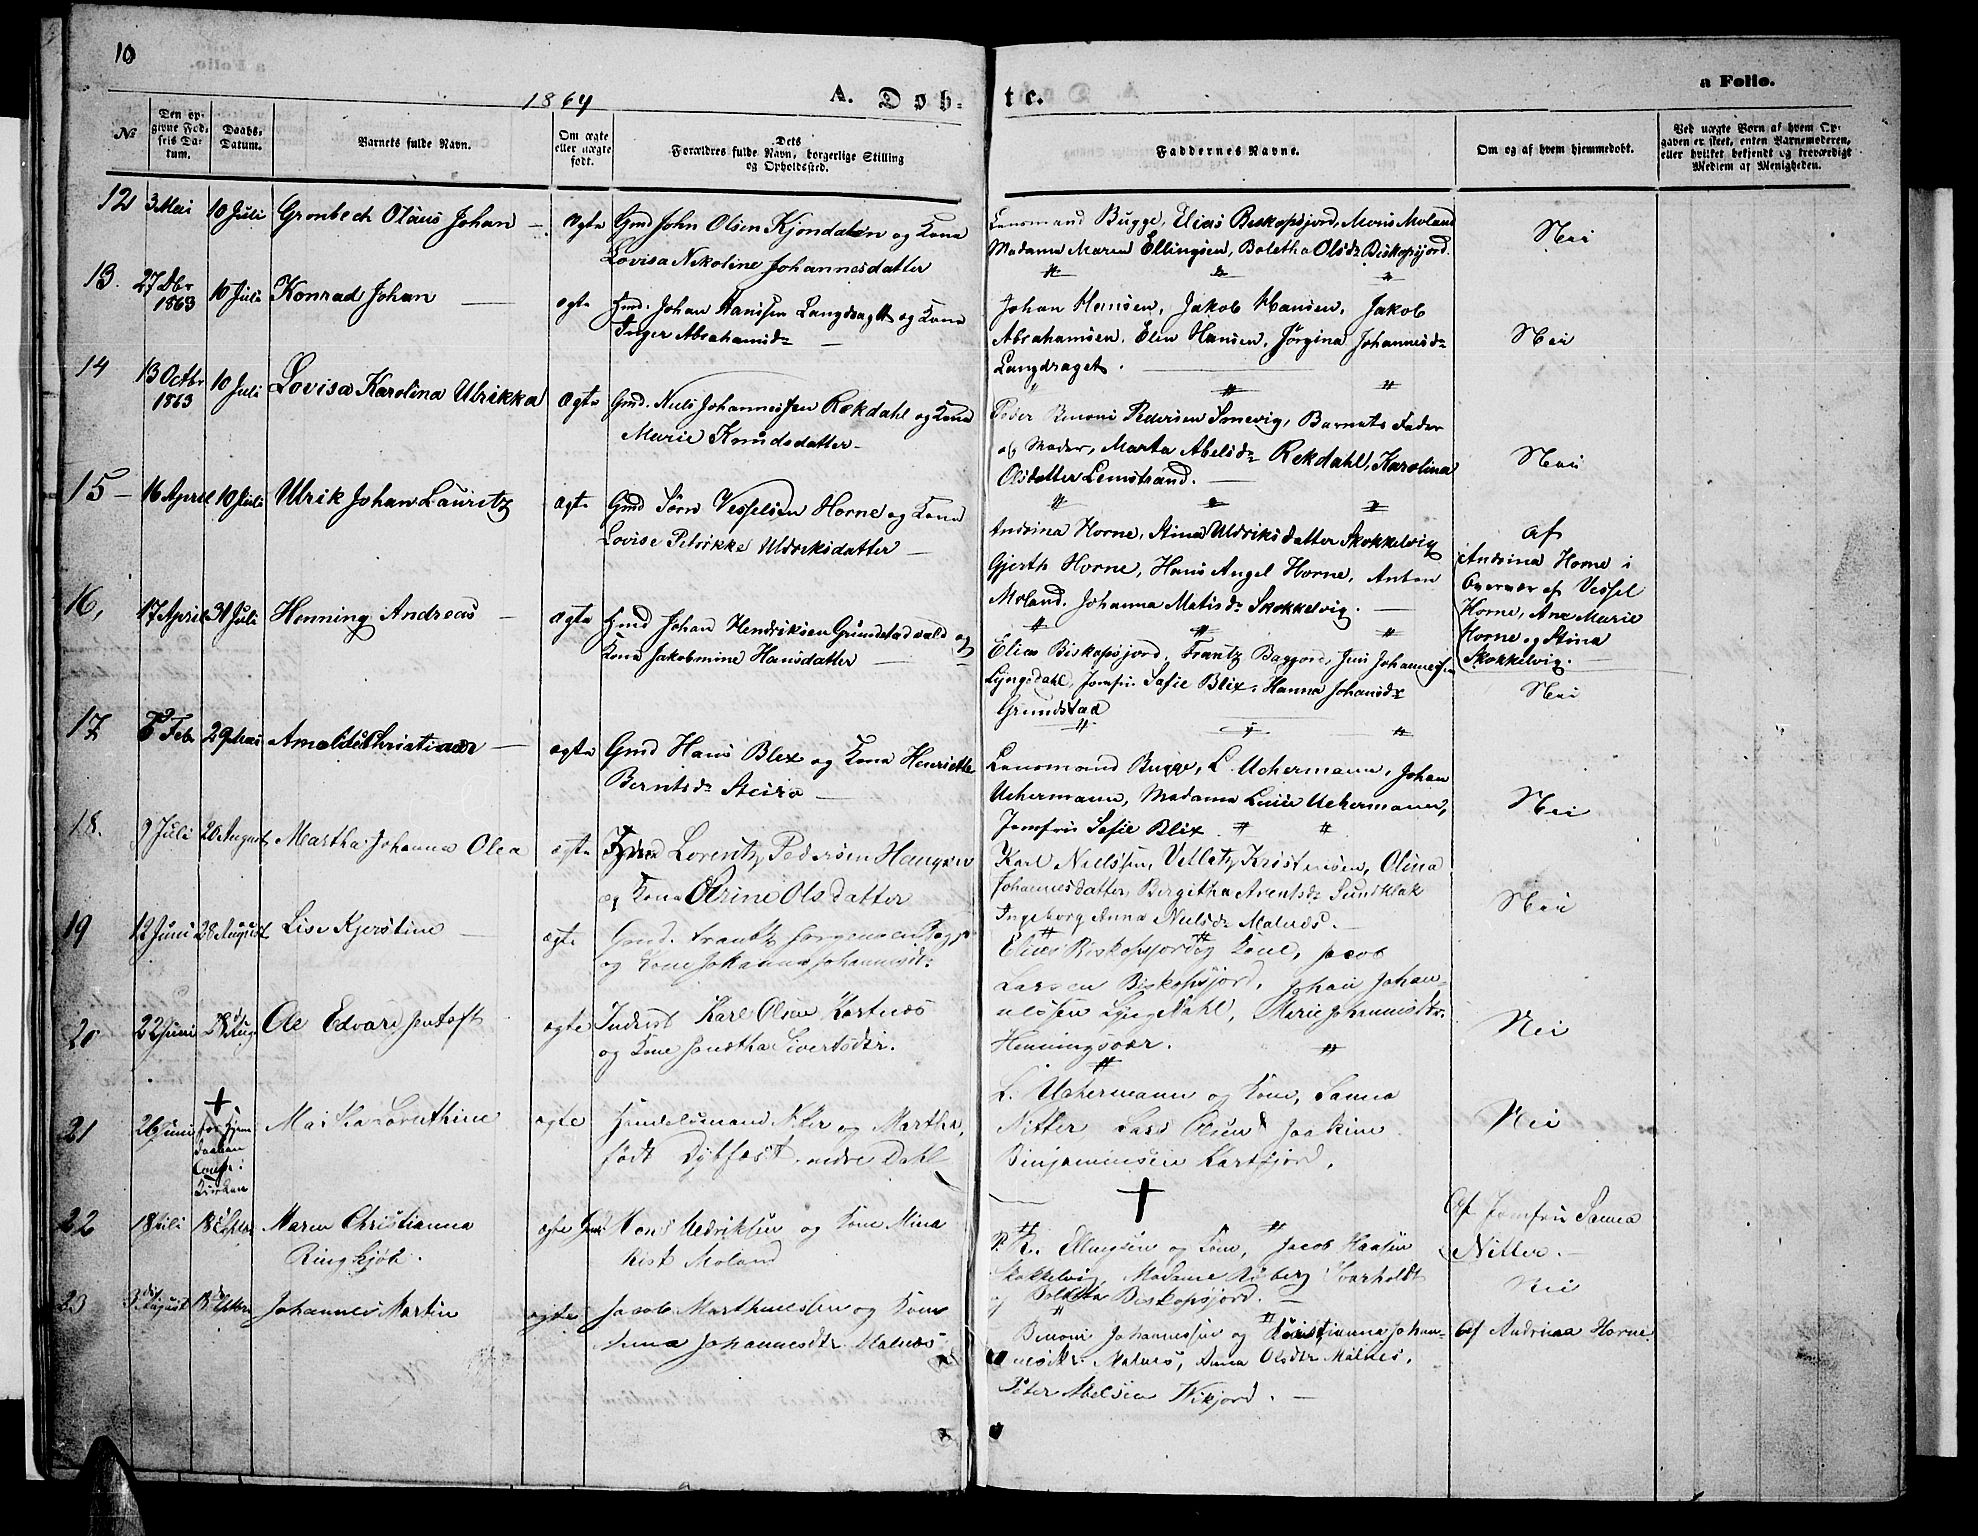 10
a Folio.
1864
A. Døb-
te.
№
Den op-
givne Fød-
sels Da-
tum.
Daabs-
Datum.
Barnets fulde Navn.
Om ægte
eller uægte
født.
Dets
Forældres fulde Navn, borgerlige Stilling
og Opholdssted.
Faddernes Navne.
Om og af hvem hjemmedøbt.
Ved uægte Børn af hvem Op-
gaven er skeet, enten Barnemoderen,
eller hvilket bekjendt og troværdigt
Medlem af Menigheden.
12 3 Mai 10 Juli Gronbech Olaus Johan — Ægte Gmd John Olsen Kjøndalen og Kone
Lovisa Nikoline Johannesdatter
Lensmand Bugge, Elias Biskopsjord, Mons Moland
Madame Maren Ellingsen, Boletha Olsdr Biskopsjord.
Nei
13. 27 Dbr 1863 10 Juli Konrad Johan — ægte Gmd. Johan Hanssen Langdraget og Kone
Inger Abrahamsdr —
Johan Hansen, Jakob Hansen, Jakob
Abrahamsen, Elen Hansen, Jørgina Johannesdr
Langdraget.
Nei
14 13 Octbr 1863 10 Juli Lovisa Karolina Ulrikka Ægte Gmd. Nils Johannessen Rekdahl og Kone
Marie Knudsdatter
Peder Benoni Pedersen Smevig, Barnets Fader
og Moder, Marta Abelsdr Rekdahl, Karolina
Olsdatter Lemstrand.
Nei
15 — 16 April 10 Juli Ulrik Johan Lauritz ægte Gmd Sørn Vesselsen Horne og Kone
Lovise Petrikke Uldriksdatter —
Andrina Horne, Stina Uldriksdatter Skokkelvig
Gjerth Horne, Hans Angel Horne, Anton
Moland. Johanna Matisdr Skokkelvig.
af
Andrina Horne i
Overvær af Vessel
Horne, Ane Marie
Horne og Stina
Skokkelvig.
16, 17 April 31 Juli Henning Andreas — ægte Gmd Johan Hendriksen Grundstad og
Kone Jakobmine Hansdatter —
Elias Biskopsjord, Frantz Baggjord, Jens Johannessen
Lyngedahl, Jomfru Sofie Blix, Hanna Johansdr
Grundstad
Nei
17 Feb. 29 Mai — ægte Gmd Hans Blix og Kone Henriette
Berntsdr Steiro —
Lensmand Bugge, L. Uchermann, Johan
Uchermann, Madame Uchermann,
Jomfru Sofie Blix.
Nei
18. 9 Juli August Martha Johanna Olea ægte Lorentz Pedersen Haugen
og Kone Olrine Olsdatter
Karl Nielssen, Kristensen, Olina
Johannesdatter, Bergitha Arentsdr Sundklak
Ingeborg Anna Nielsdr Malnæs.
Nei
19 12 Juni 28 August Lise Kjerstine — ægte Gmd. Frantz Jørgensen
og Kone Johanna Johannesdtr
Elias Biskopsjord og Kone, Jacob
Larsen Biskopsjord, Johan Johan-
nessen Lyngedahl, Marie Johannesdtr.
Henningsvær.
Nei
20 22 Juni Aug Ole Edvard Jentoft ægte Karl Olsen Kartnæs
og Kone Sivertsdtr.
L. Uchermann og Kone, Sanna
Nitter Lars Olsen Joakim
Binjaminsen Kartfjord.
Nei
21 26 Juni ægte Handelsmand Niter og Martha,
født Dybfest. nedre Dahl
Af Jomfru Sanna
Nitter.
22 18 Juli 18 Septbr Maren Christianna
Ringkjøb.
ægte Gmd. Mons Uldriksen og Kone Mina
Moland
P. K. Ellingsen og Kone, Jacob Hansen
Skokkelvig, Madame
og Boletha Biskopsjord. —
Nei
23 3 August Johannes Martin ægte Jacob Marthinessen og Kone
Anna Johannesdtr Malnæs
Benoni Johannessen og Kristianna Johan-
nesdtr. Malnes, Anna Olsdtr Malnes,
Peter Abelsen Vikjord. —
Af Andrina Horne